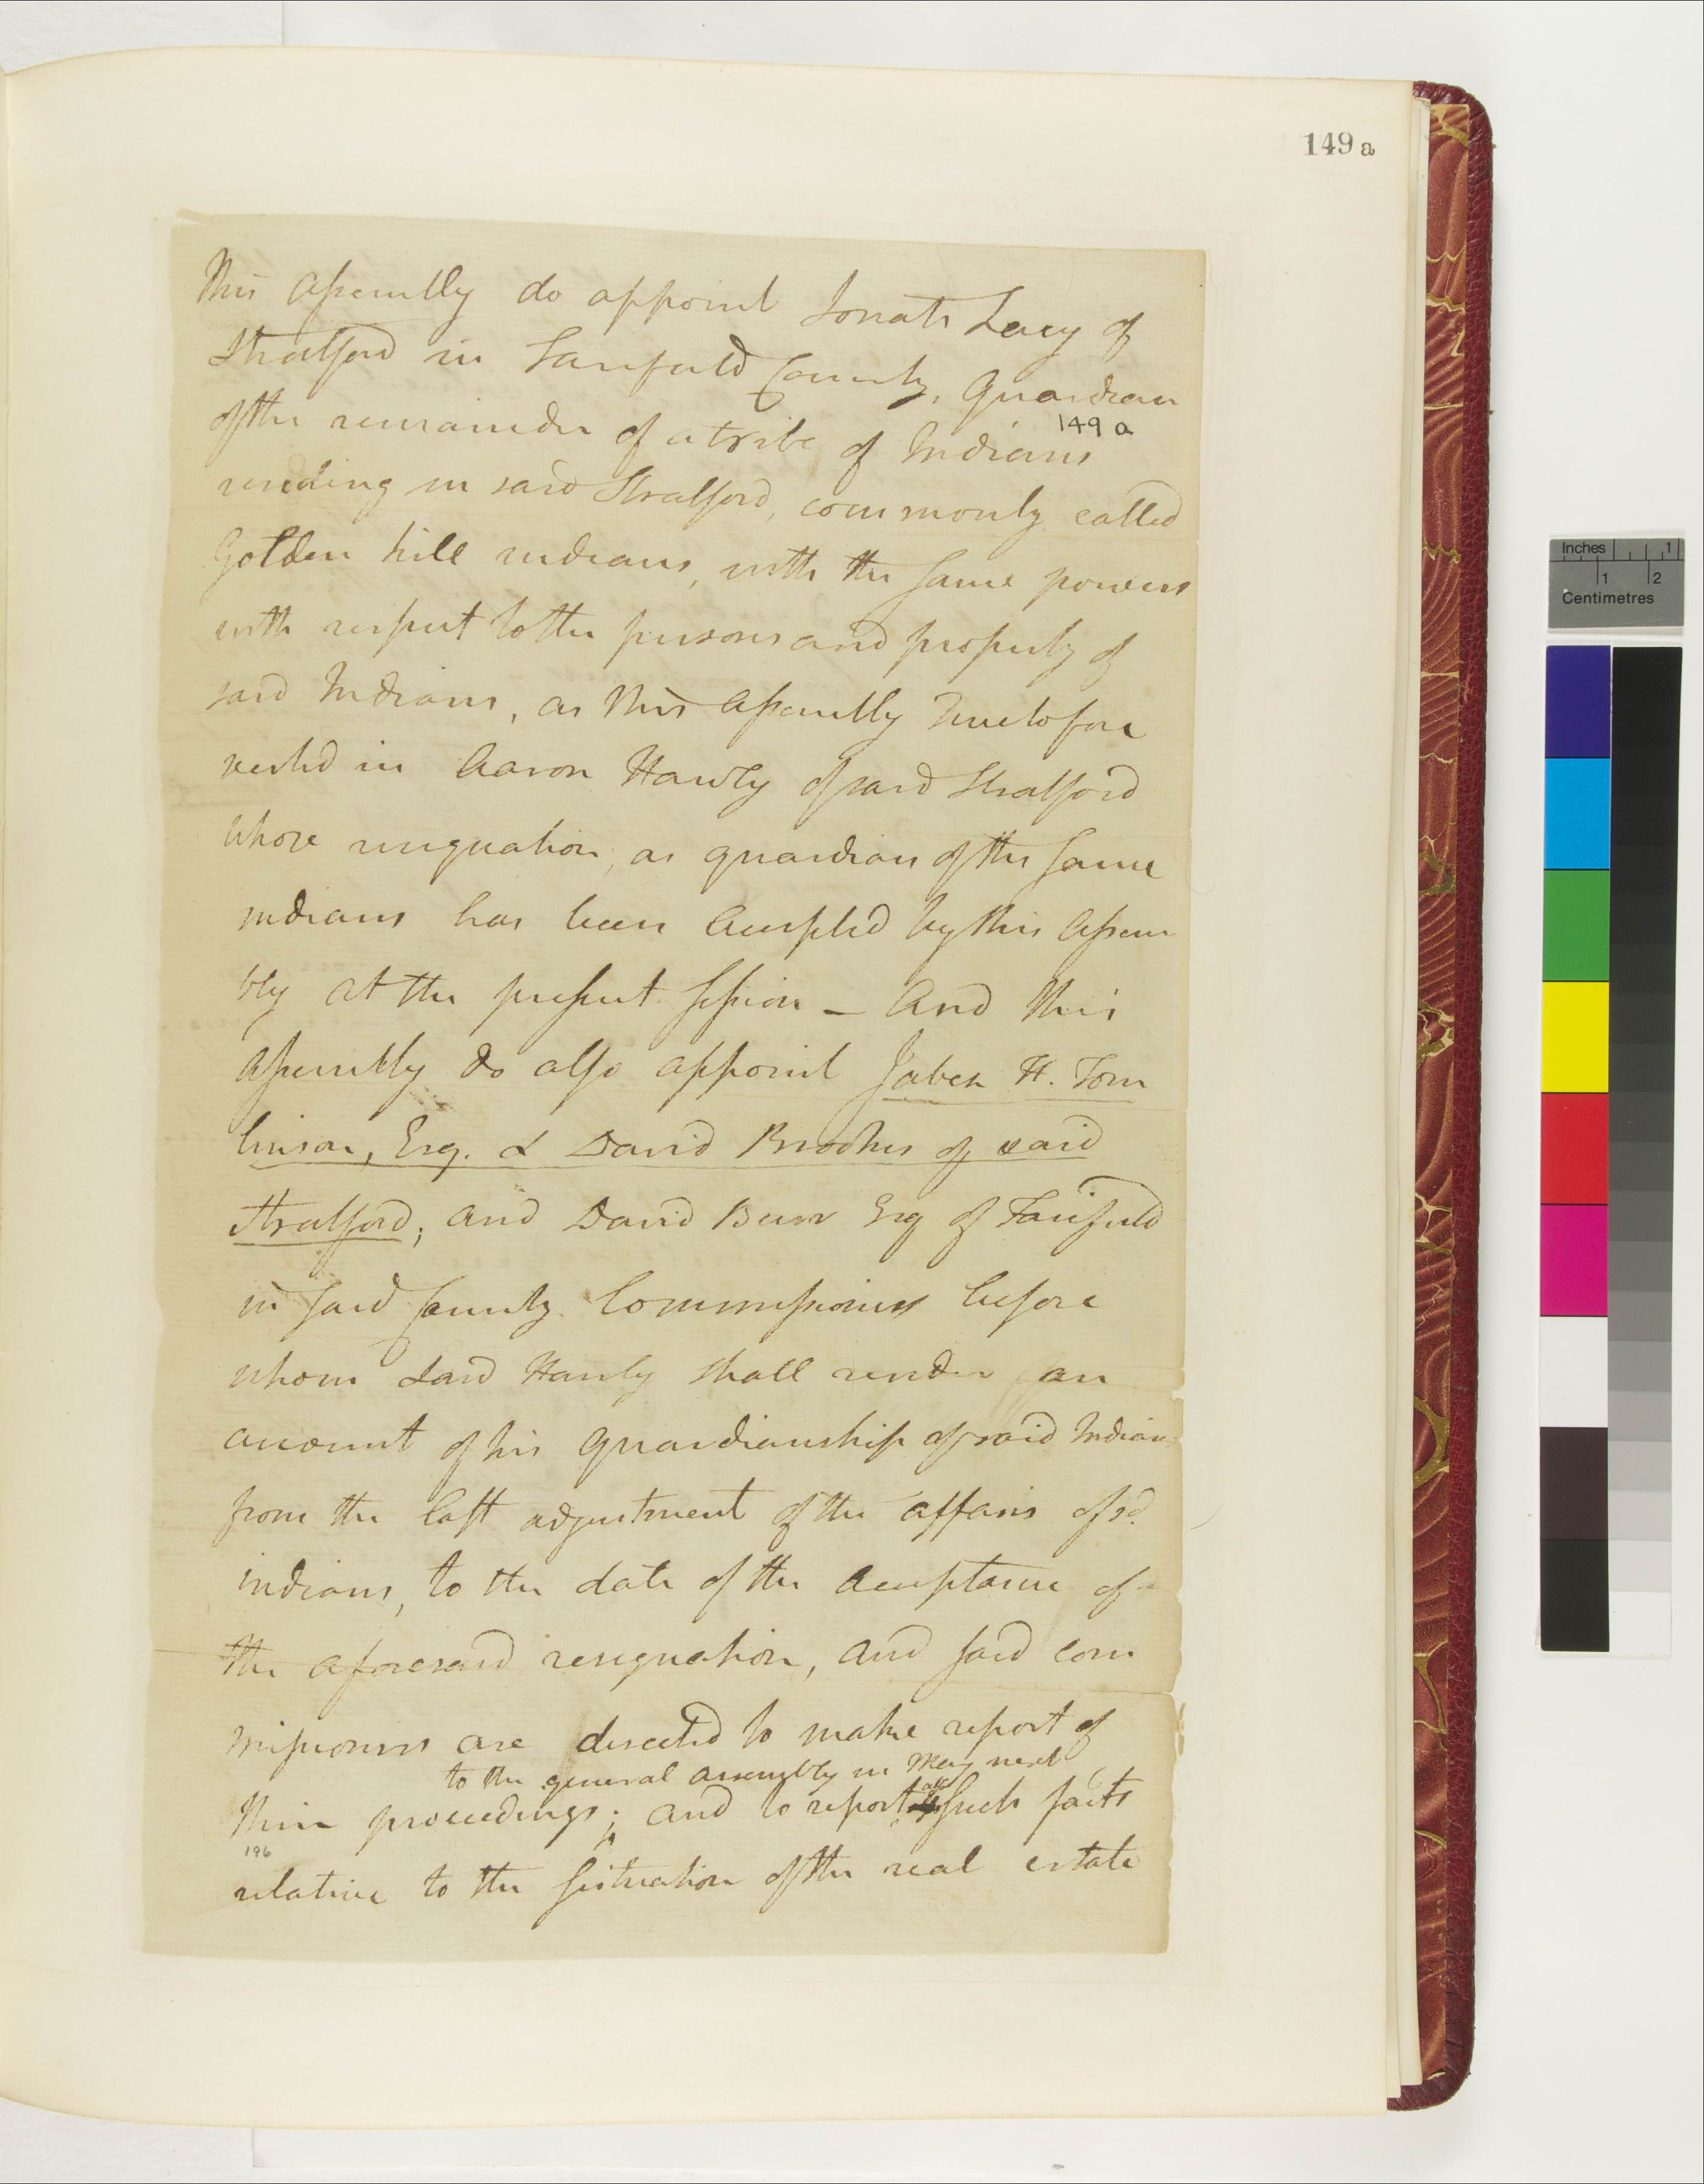 149 a
This Assembly do appoint Jonath Lacy of
Stratford in Fairfield County, Guardian
of the remainder of a tribe of Indians
149 a
residing in said Stratford, commonly called
Golden hill indians, with the same powers
with respect to the persons and property of
said Indians, as this Assembly heretofore
vested in Aaron Hawly of said Stratford
whose resignation, as guardian of the same
indians has been accepted by this Assem
bly at the present session – And this
Assembly do also appoint Jabez H. Tom
linson, Esq. & David Brookes of said
Stratford; and David Burr Esq of Fairfield
in said County Commissioners before
whom said Hawly shall render an
account of his guardianship of said Indians
from the last adjustment of the affairs of sd.
indians, to the date of the acceptance of
the aforesaid resignation, and said com
missioners are directed to make report of
to the general assembly in May next
their proceedings; and to report all such facts
196
relative to the situation of the real estate
Inches 1
1 2
Centimetres